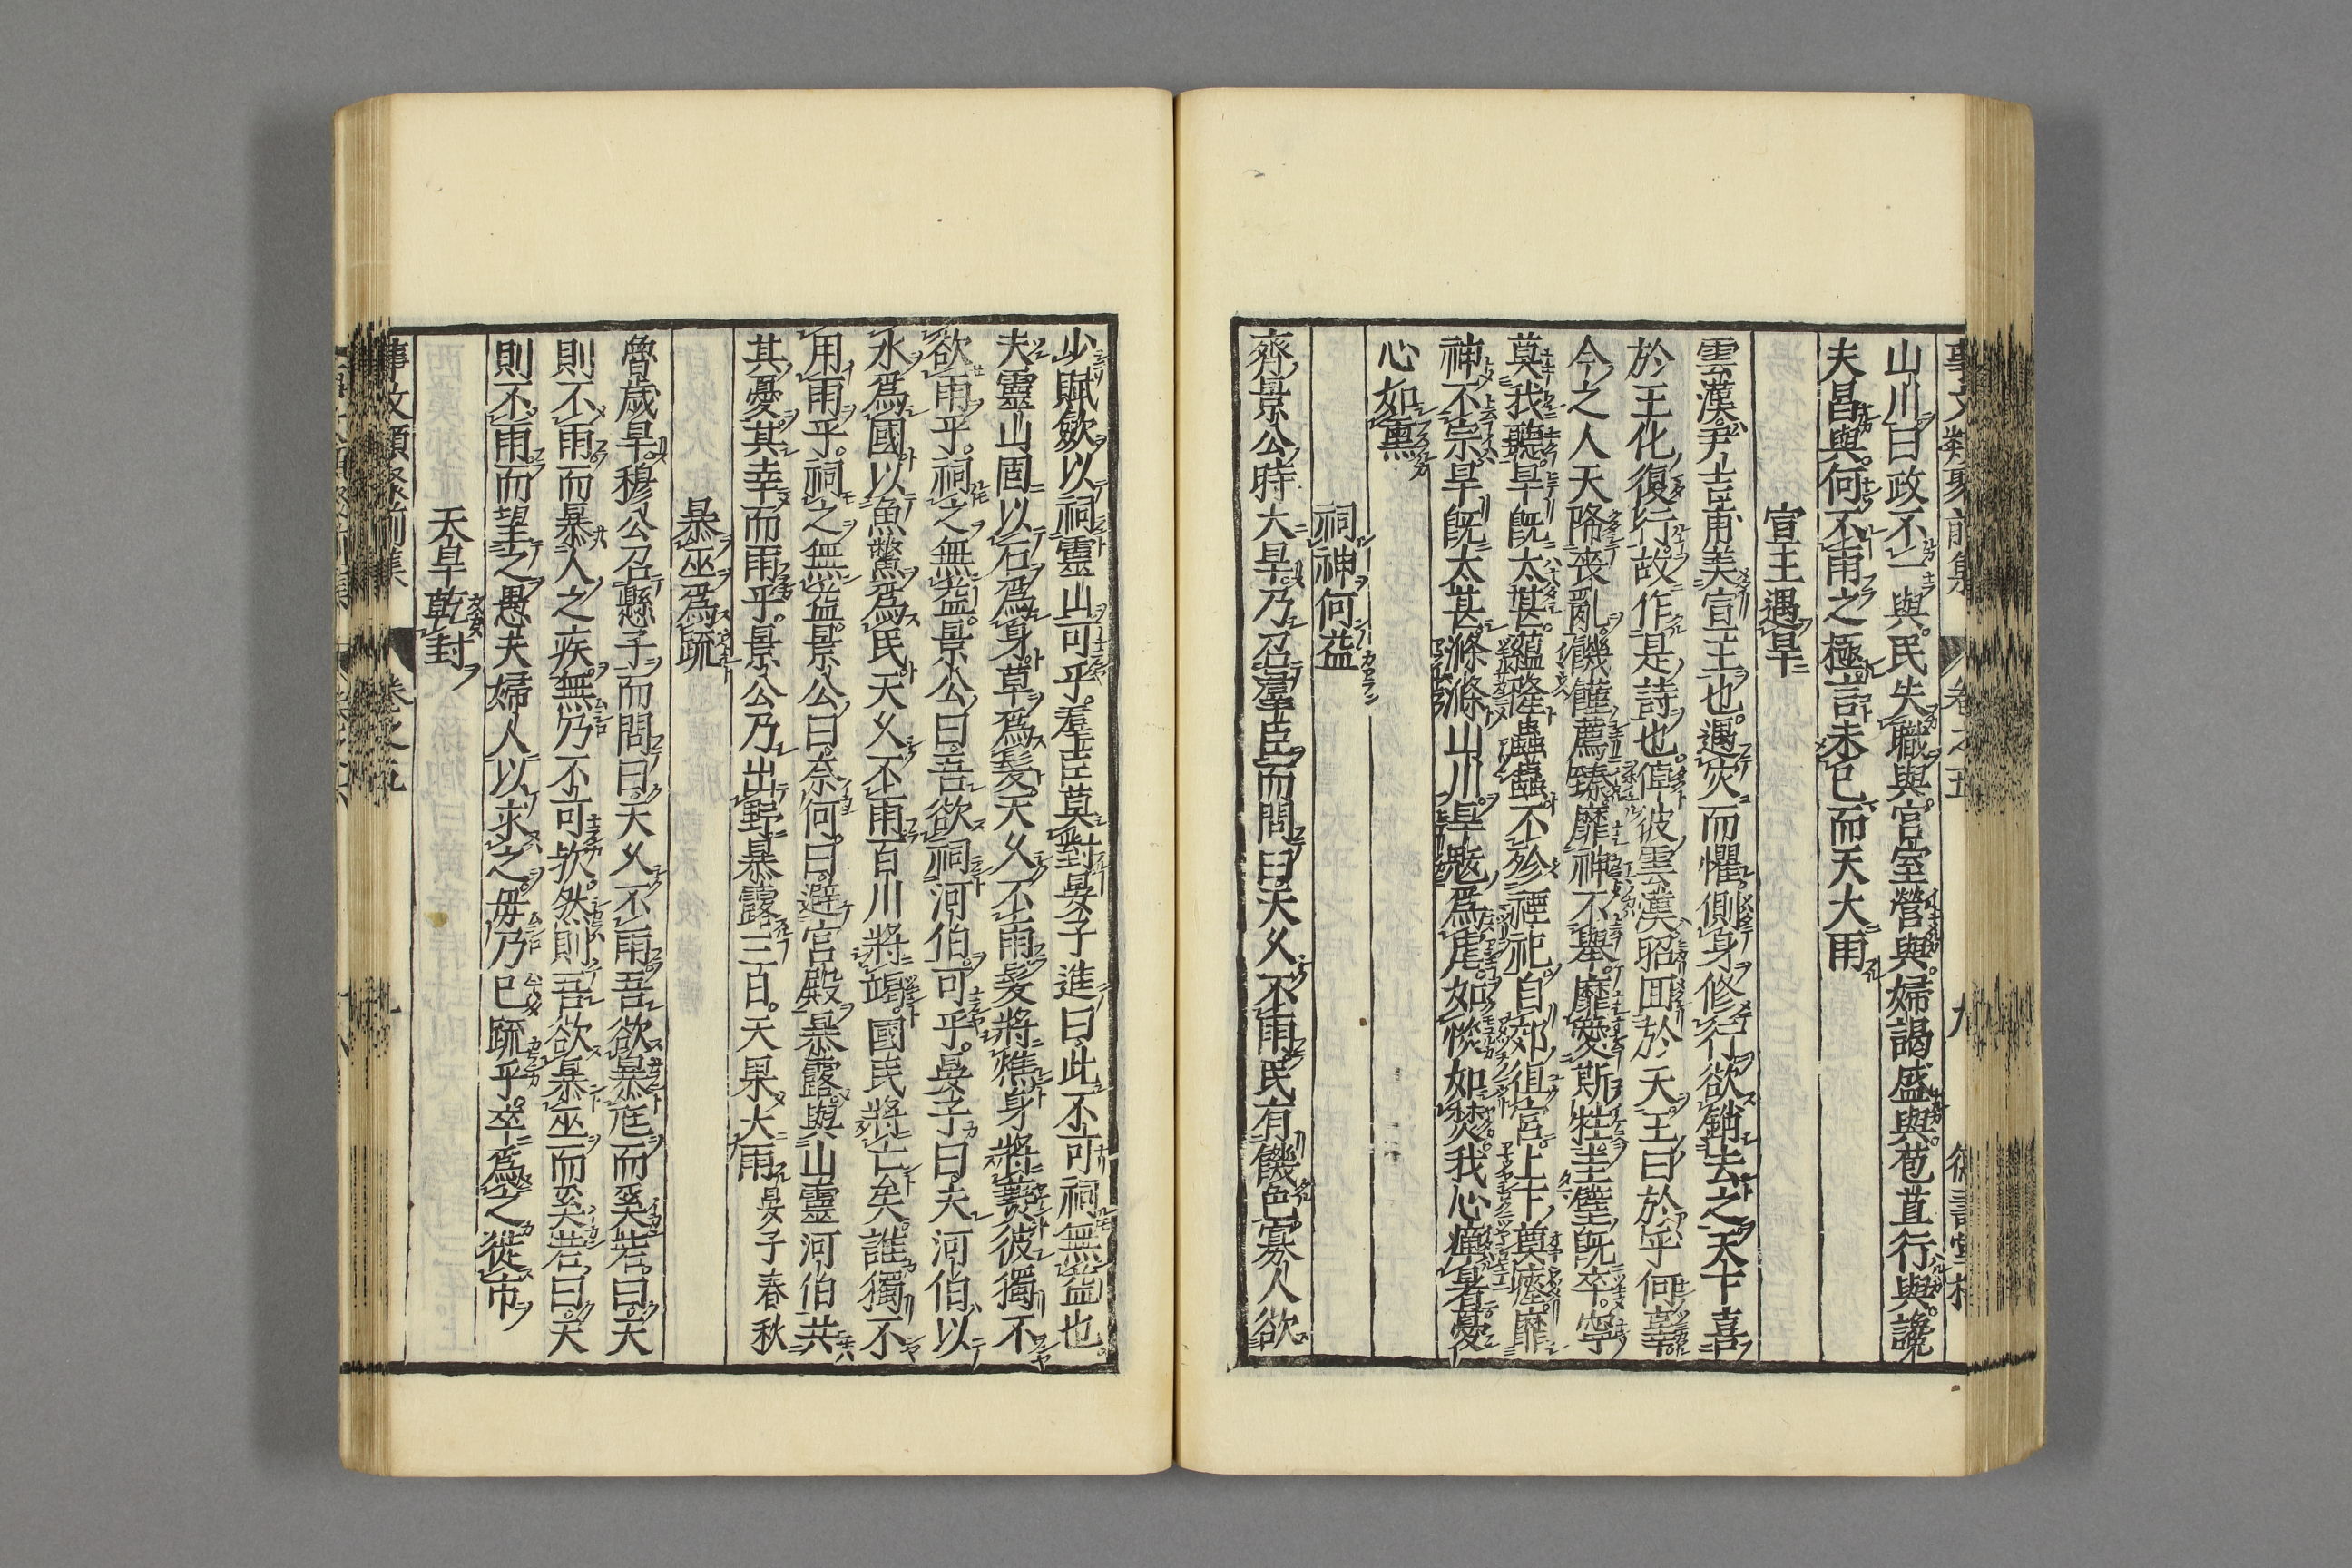 事文類聚前集 卷之五 九
山川曰政不一與民失職與宮室營與婦謁盛與苞苴行與讒
夫昌與何不雨之極言未已而天大雨
宣王遇旱
雲漢尹吉甫美宣王也遇灾而懼側身修行欲銷去之天下喜
於王化復行故作是詩也倬彼雲漢昭囬於天王曰於乎何辜
今之人天降喪亂饑饉薦臻靡神不舉靡愛斯牲圭璧既卒寧
莫我聽旱既太甚蘊隆蟲蟲不殄禋祀自郊徂宮上下奠瘞靡
神不宗旱既太甚滌滌山川旱魃爲虐如惔如焚我心憚暑憂
心如熏
祠神何益
齊景公時大旱乃召羣臣而問曰天久不雨民有饑色寡人欲
少賦斂以祠靈山可乎羣臣莫對晏子進曰此不可祠無益也
夫靈山固以石爲身草爲髮天久不雨髮將燋身將爇彼獨不
欲雨乎祠之無益景公曰吾欲祠河伯可乎晏子曰夫河伯以
水爲國以魚鱉爲民天久不雨百川將竭國民將亡矣誰獨不
用雨乎祠之無益景公曰奈何曰避宮殿暴露與山靈河伯共
其憂其幸而雨乎景公乃出野暴露三日天果大雨晏子春秋
暴巫爲疏
魯歲旱穆公召懸子而問曰天久不雨吾欲暴尫而奚若曰天
則不雨而暴人之疾無乃不可歟然則吾欲暴巫而奚若曰天
則不雨而望之愚夫婦人以求之毋乃已疏乎卒爲之徙市
天旱乾封
事文類聚前集 卷之五